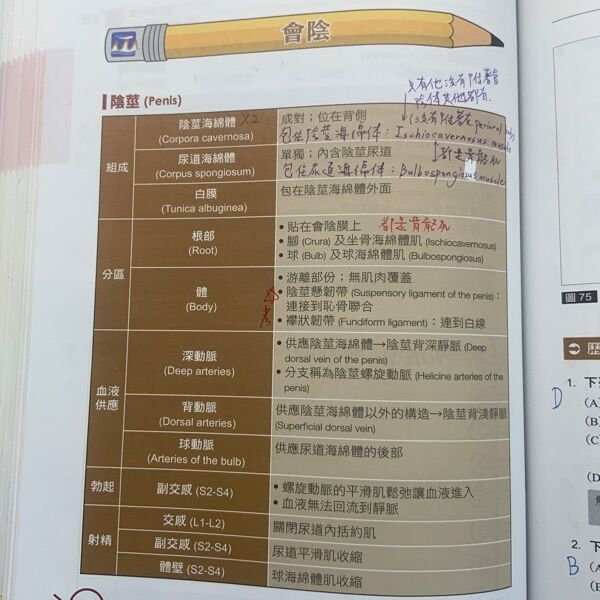 會陰
陰莖 (Penis)
只有他沒有附著在
陰停其他都有.
組成
陰莖海綿體 ×2
(Corpora cavernosa)
成對；位在背側
(沒有附著在perineal body)
包住陰莖海綿体：Ischiocavernosus muscle
尿道海綿體
(Corpus spongiosum)
單獨；內含陰莖尿道
都是骨骼肌
包住尿道海綿体：Bulbospongiosus muscle
白膜
(Tunica albuginea)
包在陰莖海綿體外面
分區
根部
(Root)
• 貼在會陰膜上 都是骨骼肌
• 腳 (Crura) 及坐骨海綿體肌 (Ischiocavernosus)
• 球 (Bulb) 及球海綿體肌 (Bulbospongiosus)
體
(Body)
• 游離部份；無肌肉覆蓋
• 陰莖懸韌帶 (Suspensory ligament of the penis)：
連接到恥骨聯合
• 襻狀韌帶 (Fundiform ligament)：連到白線
☆
考
血液
供應
深動脈
(Deep arteries)
• 供應陰莖海綿體→陰莖背深靜脈 (Deep
dorsal vein of the penis)
• 分支稱為陰莖螺旋動脈 (Helicine arteries of the
penis)
背動脈
(Dorsal arteries)
供應陰莖海綿體以外的構造→陰莖背淺靜脈
(Superficial dorsal vein)
球動脈
(Arteries of the bulb)
供應尿道海綿體的後部
勃起
副交感 (S2-S4)
• 螺旋動脈的平滑肌鬆弛讓血液進入
• 血液無法回流到靜脈
射精
交感 (L1-L2)
關閉尿道內括約肌
副交感 (S2-S4)
尿道平滑肌收縮
體壁 (S2-S4)
球海綿體肌收縮
圖 75
D 1. 下
(A
(B)
(C)
(D
B 2. 下
(A
(B